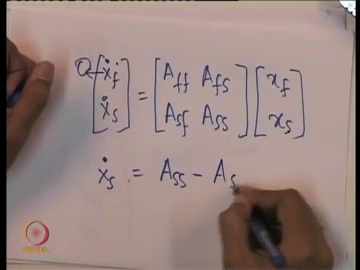 [ẋ_f; ẋ_s] = [A_ff A_fs; A_sf A_ss] [x_f; x_s]
ẋ_s = A_ss - A_s